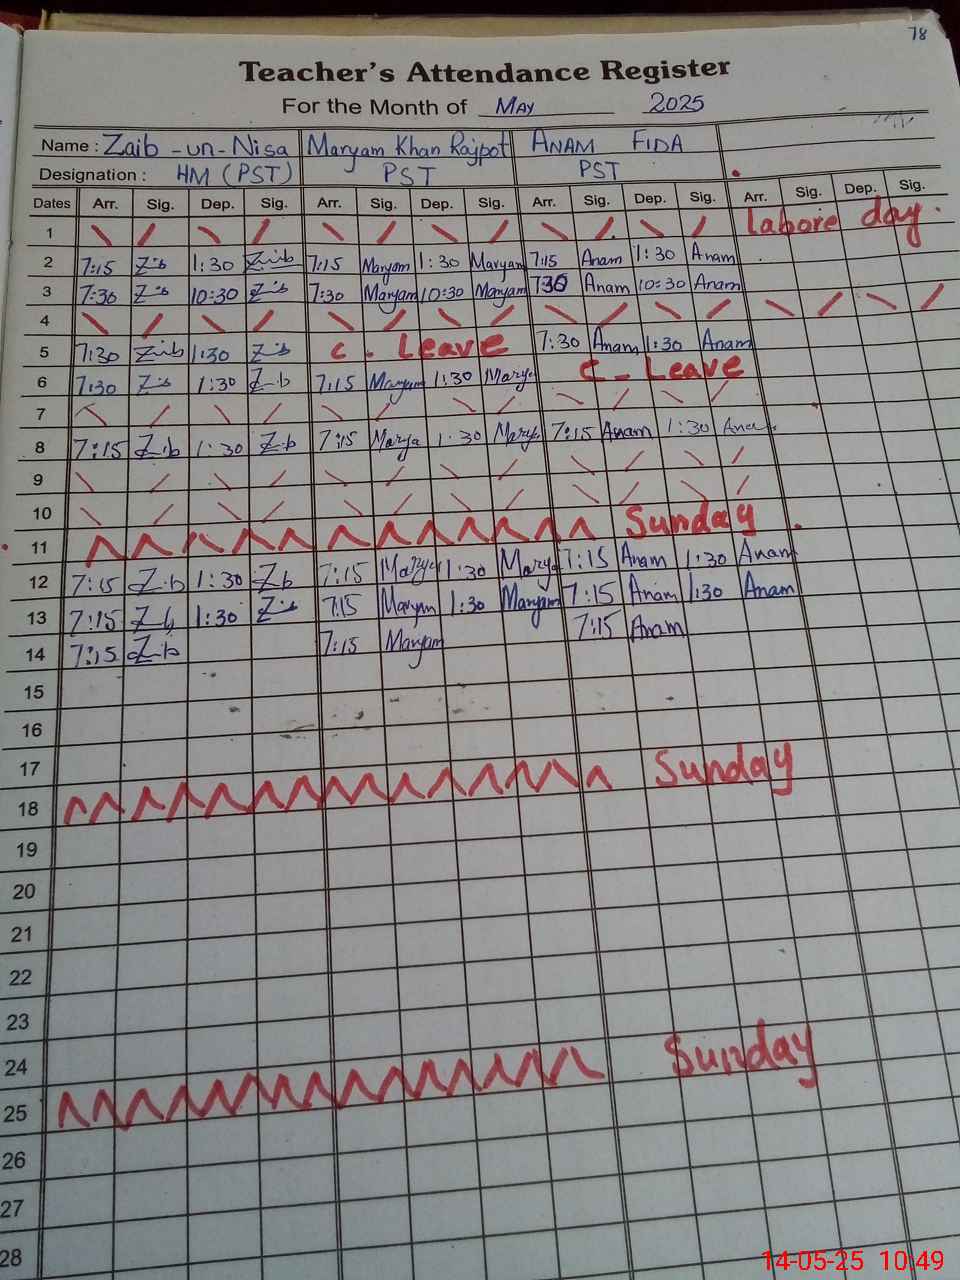 78
Teacher's Attendance Register
For the Month of May 2025
Name : Zaib -un- Nisa Maryam Khan Rajpot ANAM FIDA
Designation : HM (PST) PST PST
Dates Arr. Sig. Dep. Sig. Arr. Sig. Dep. Sig. Arr. Sig. Dep. Sig. Arr. Sig. Dep. Sig.
1 labore day.
2 7:15 Zib 1:30 Zib 7:15 Maryam 1:30 Maryam 7:15 Anam 1:30 Anam
3 7:30 Zib 10:30 Zib 7:30 Maryam 10:30 Maryam 7:30 Anam 10:30 Anam
4
5 7:30 Zib 1:30 Zib C. Leave 7:30 Anam 1:30 Anam
6 7:30 Zib 1:30 Zib 7:15 Maryam 1:30 Marya C - Leave
7
8 7:15 Zib 1:30 Zib 7:15 Marya 1:30 Mary 7:15 Anam 1:30 Anam
9
10
11 Sunday
12 7:15 Zib 1:30 Zb 7:15 Marya 1:30 Marya 7:15 Anam 1:30 Anam
13 7:15 Zib 1:30 Zib 7:15 Maryam 1:30 Maryam 7:15 Anam 1:30 Anam
14 7:15 Zib 7:15 Maryam 7:15 Anam
15
16
17
18 Sunday
19
20
21
22
23
24
25 Sunday
26
27
28
14-05-25 10:49